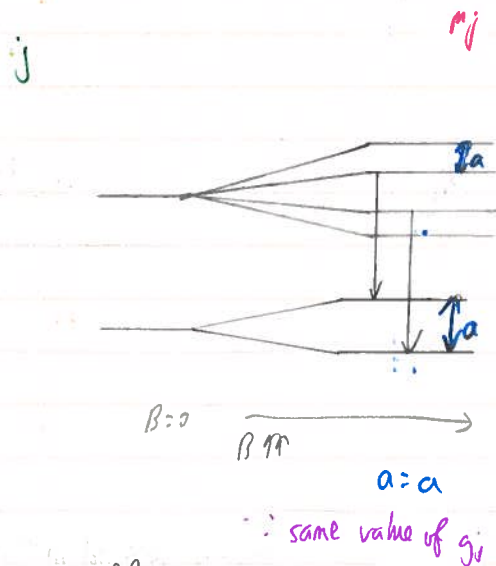 mj
j
a
a
B=0
B ↑↑
a=a
∴ same value of gj